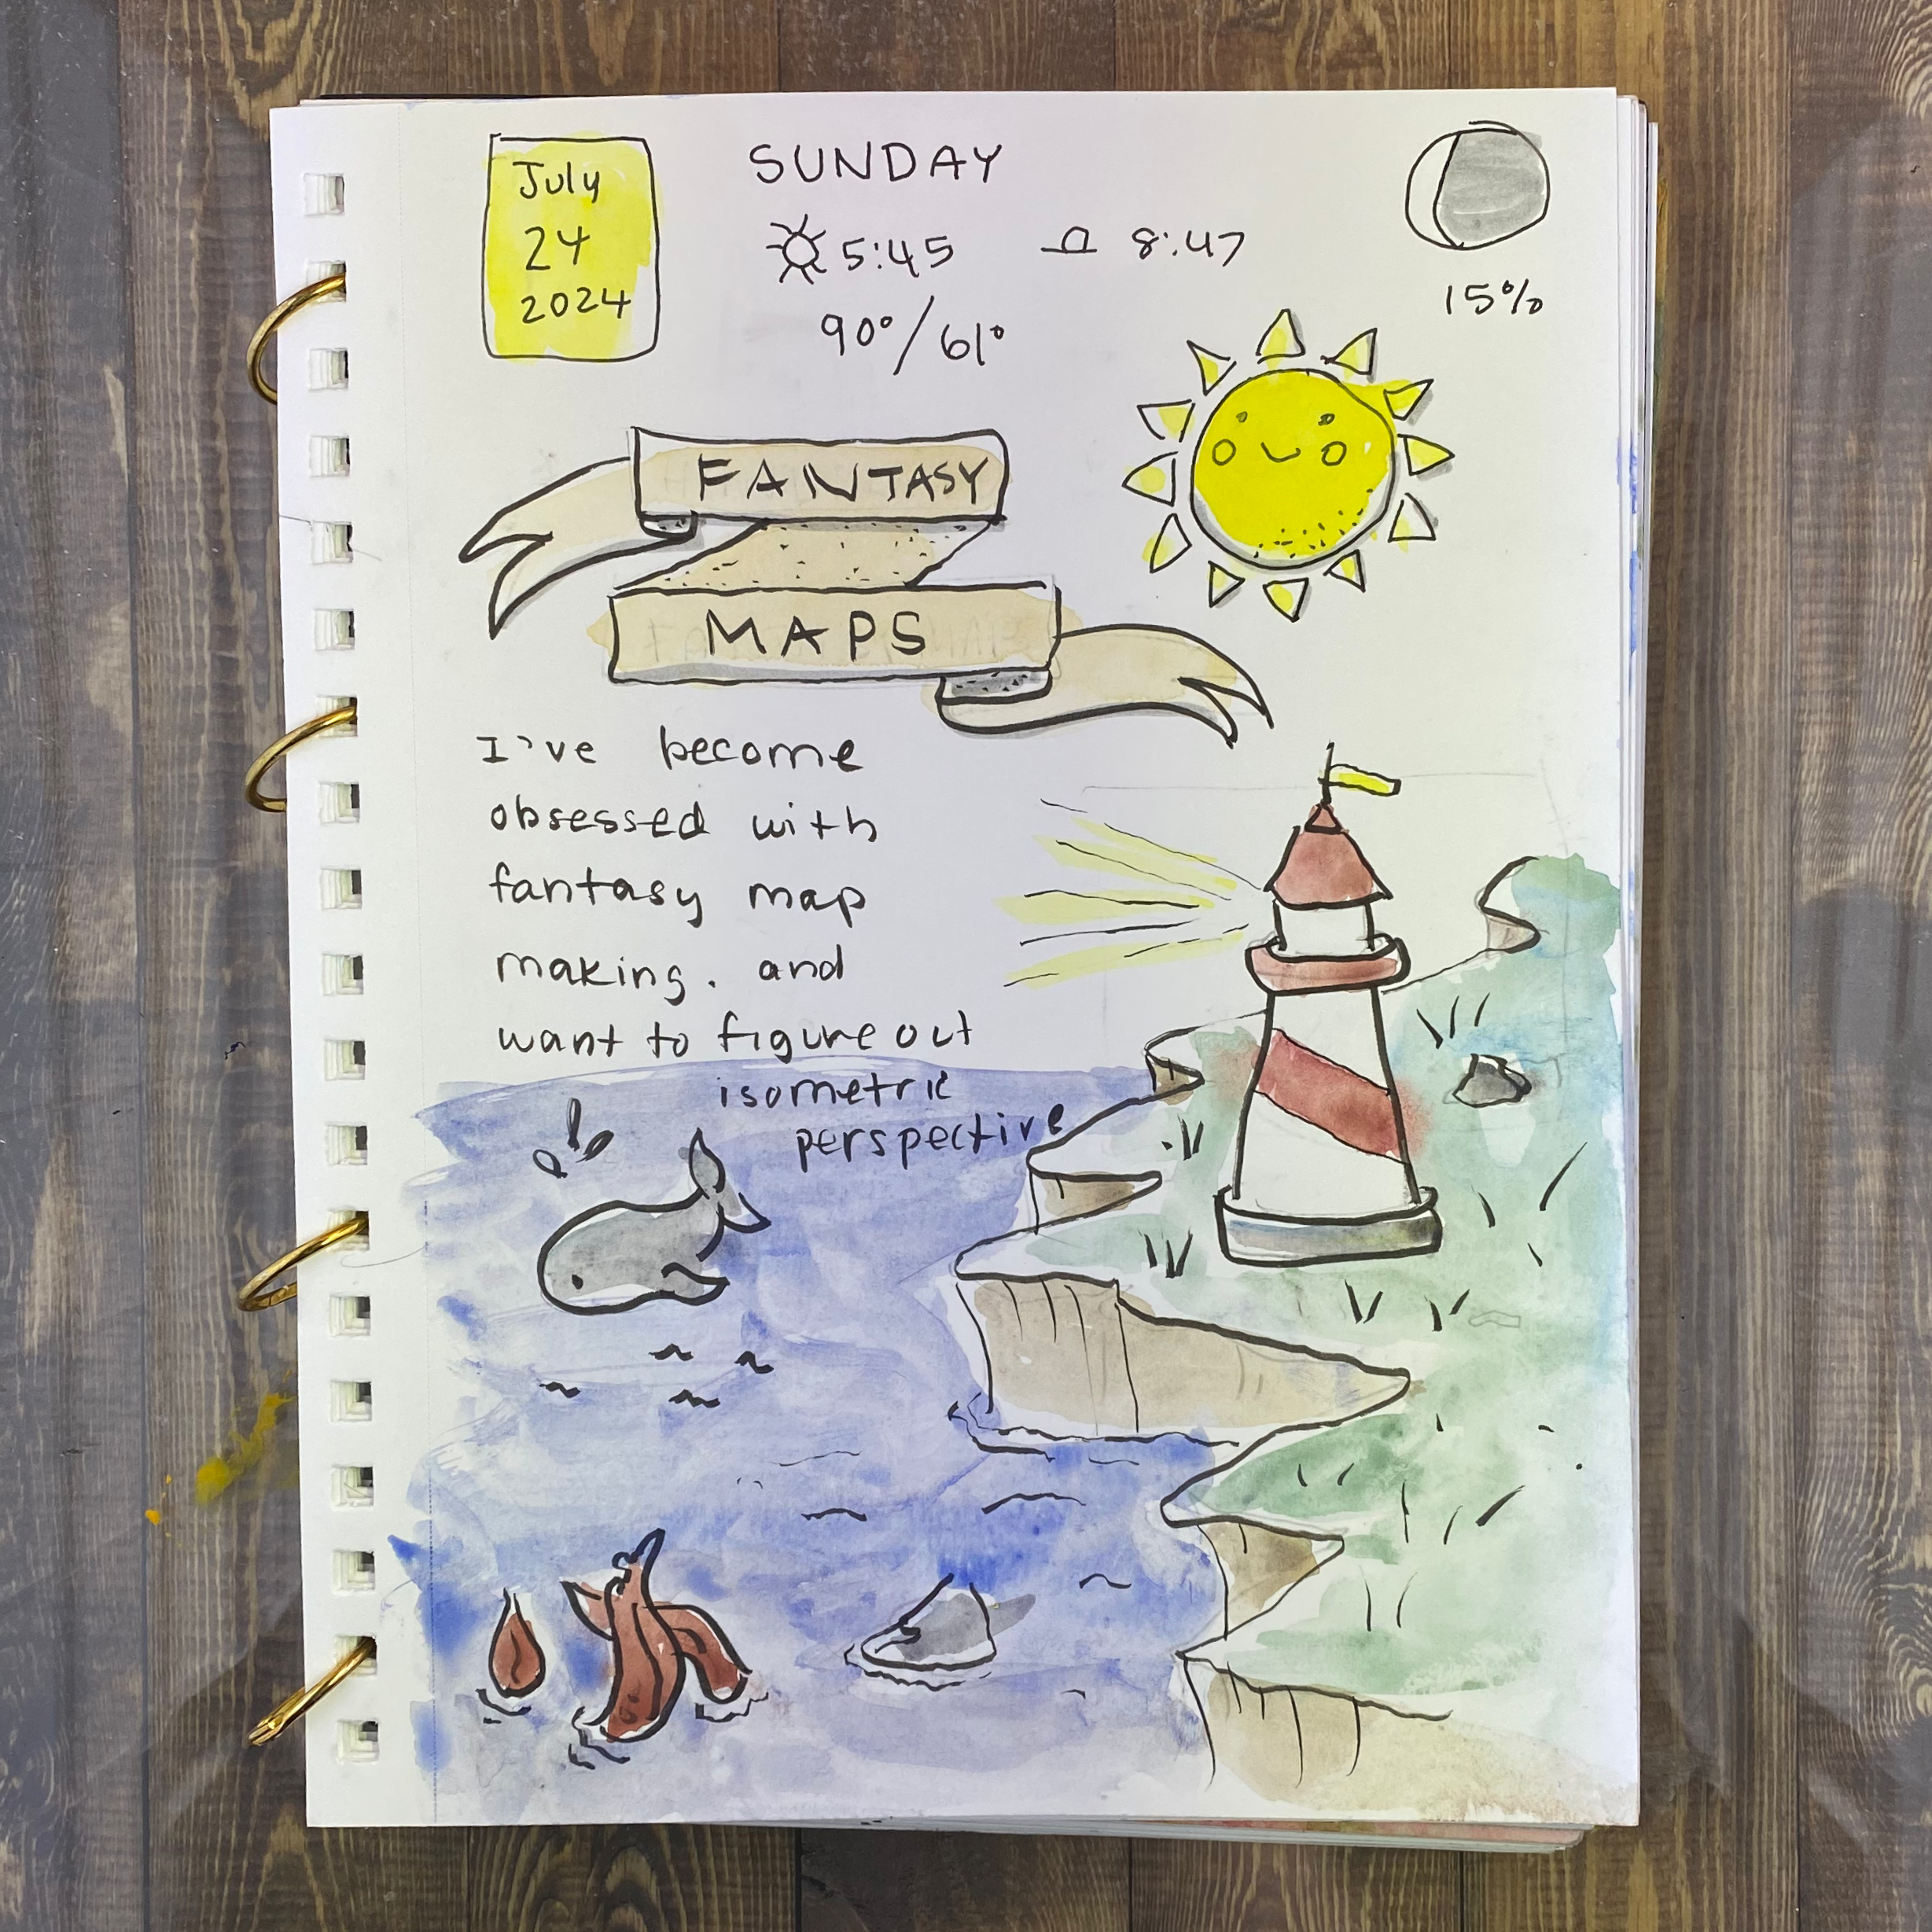 July
24
2024
SUNDAY
5:45 8:47
90°/61°
15%
FANTASY
MAPS
I've become
obsessed with
fantasy map
making. and
want to figure out
isometric
perspective